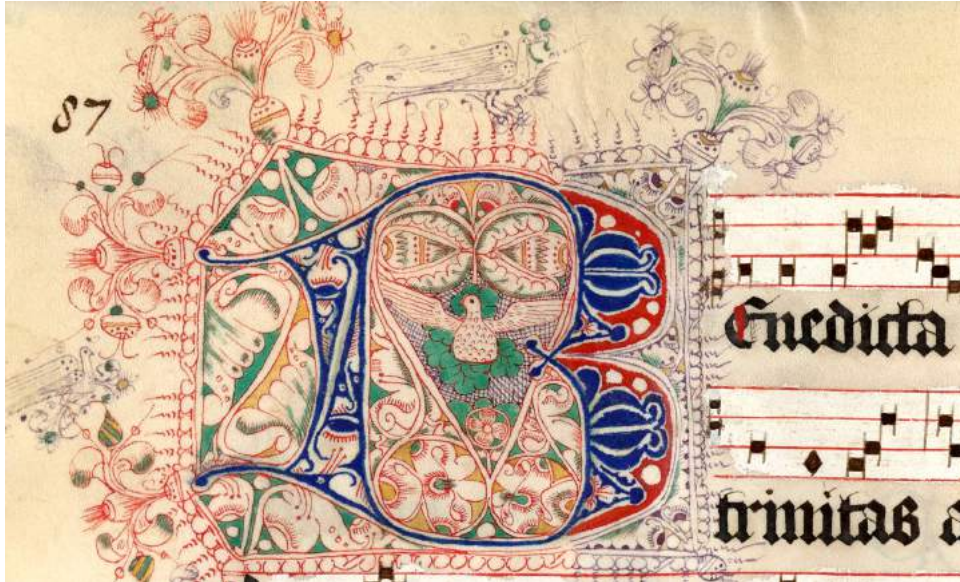 87
BEnedicta
trinitas a